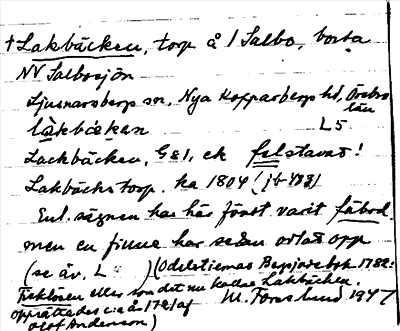 † Lakbäcken, torp å 1 Salbo, borta
NV Salbosjön
Ljusnarsbergs sn, Nya Kopparbergs hd, Örebro län
làkbäkan L5
Lackbäcken, GEl, ek felstavat!
Lakbäcks torp. ka 1804
Enl. sägnen har här först varit fäbod
men en finne har sedan odlat opp
(se äv. L ) (Odelstiernas Bergsrebok 1782:
Finktorpen eller som det nu kallas Lakbäcken.
opprättades ca år 1721 af M. Forslund 1947
Olof Andersson)